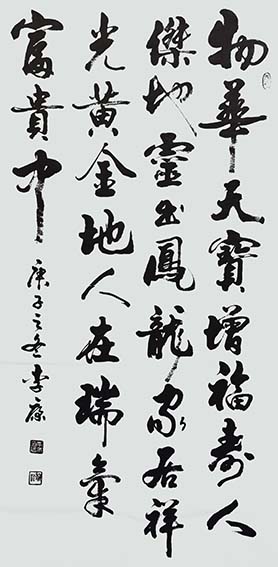 物華天寶增福壽人
傑地靈出鳳龍家居祥
光黄金地人在瑞氣
富貴中
庚子之冬李康